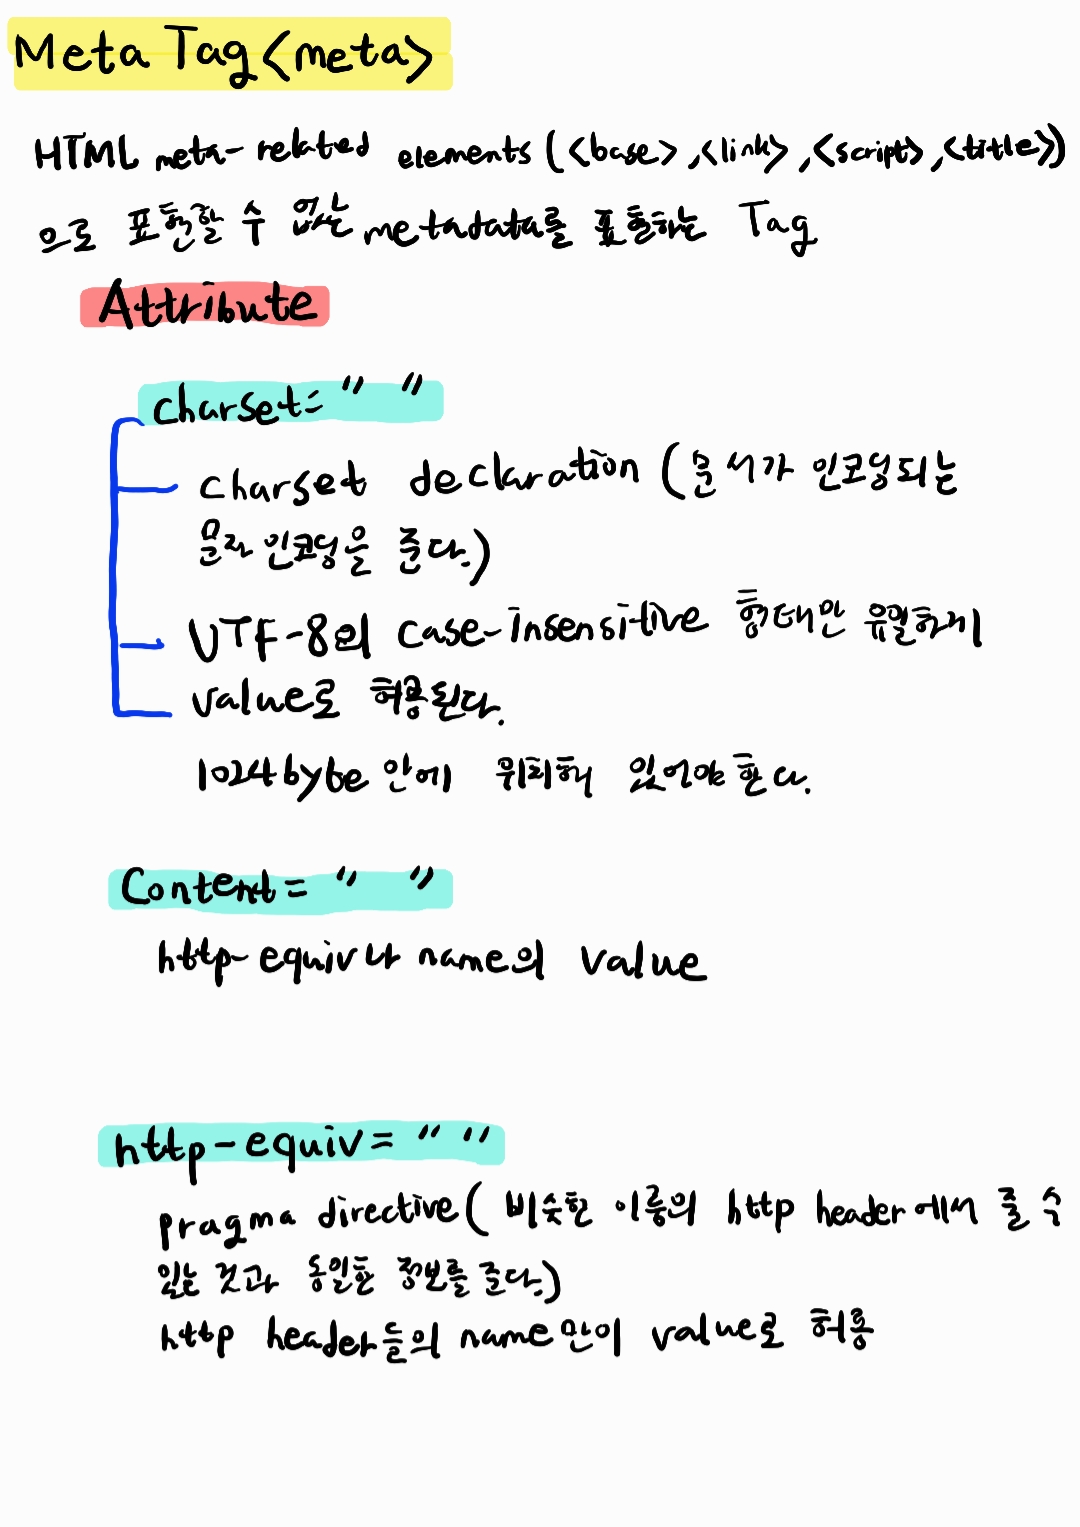 Meta Tag <meta>
HTML meta-related elements (<base>,<link>,<script>,<title>)
으로 표현할 수 없는 metadata를 표현하는 Tag
Attribute
charset= " "
charset declaration (문서가 인코딩되는
문자 인코딩을 준다.)
UTF-8의 case-insensitive 형태만 유일하게
value로 허용된다.
1024byte 안에 위치해 있어야 한다.
Content= " "
http-equiv나 name의 value
http-equiv= " "
pragma directive( 비슷한 이름의 http header에서 줄 수
있는 것과 동일한 정보를 준다.)
http header들의 name만이 value로 허용